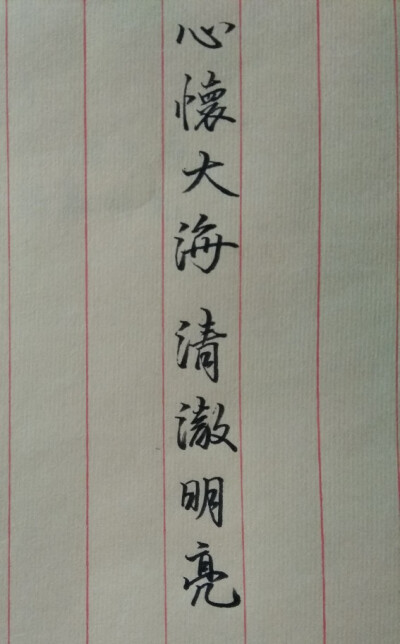 心懷大海 清澈明亮